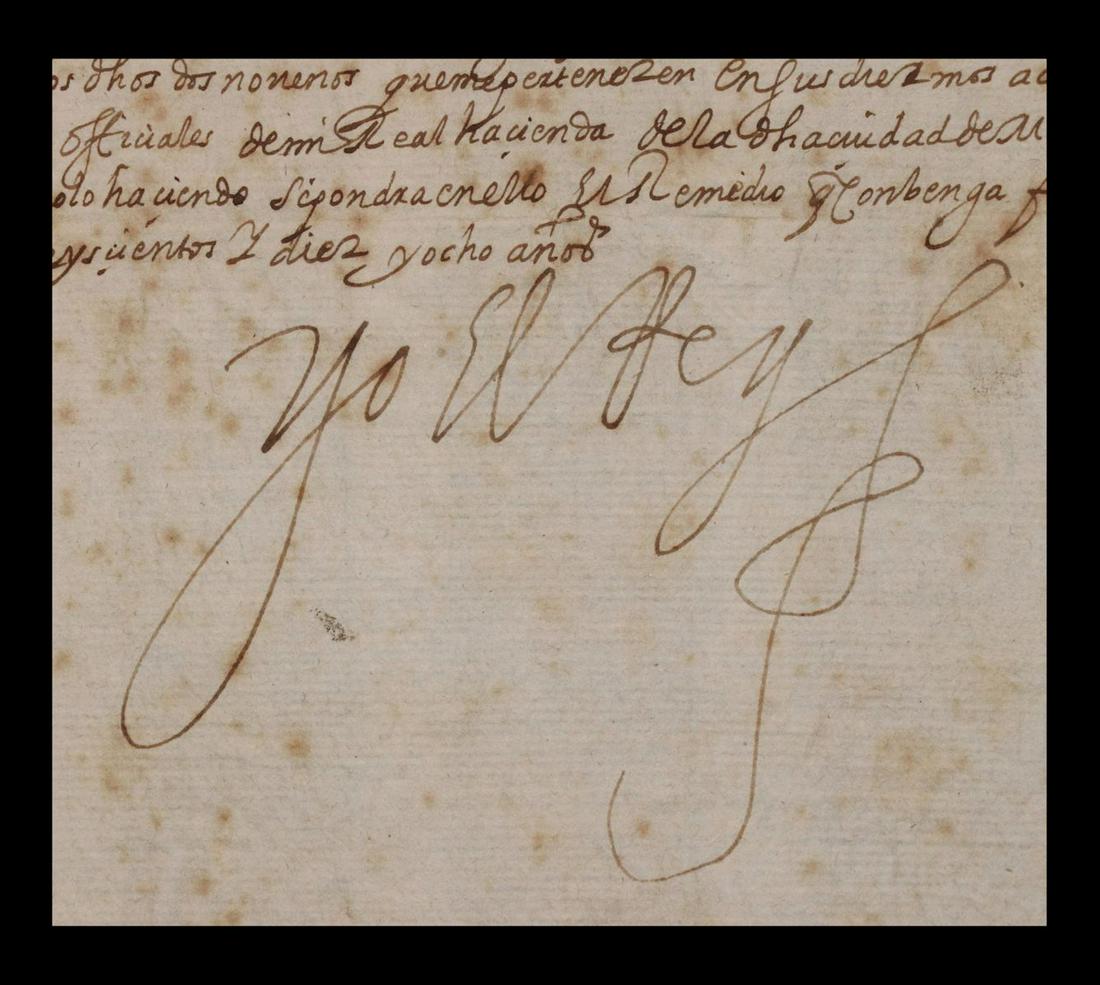 os dhos dos novenos que me pertenezen en sus diezmos a
officiales de mi Real hacienda de la dha ciudad de M
olo haciendo se pondra en ello El Remedio q Conbenga f
eys cientos Y diez y ocho años
yo El Rey